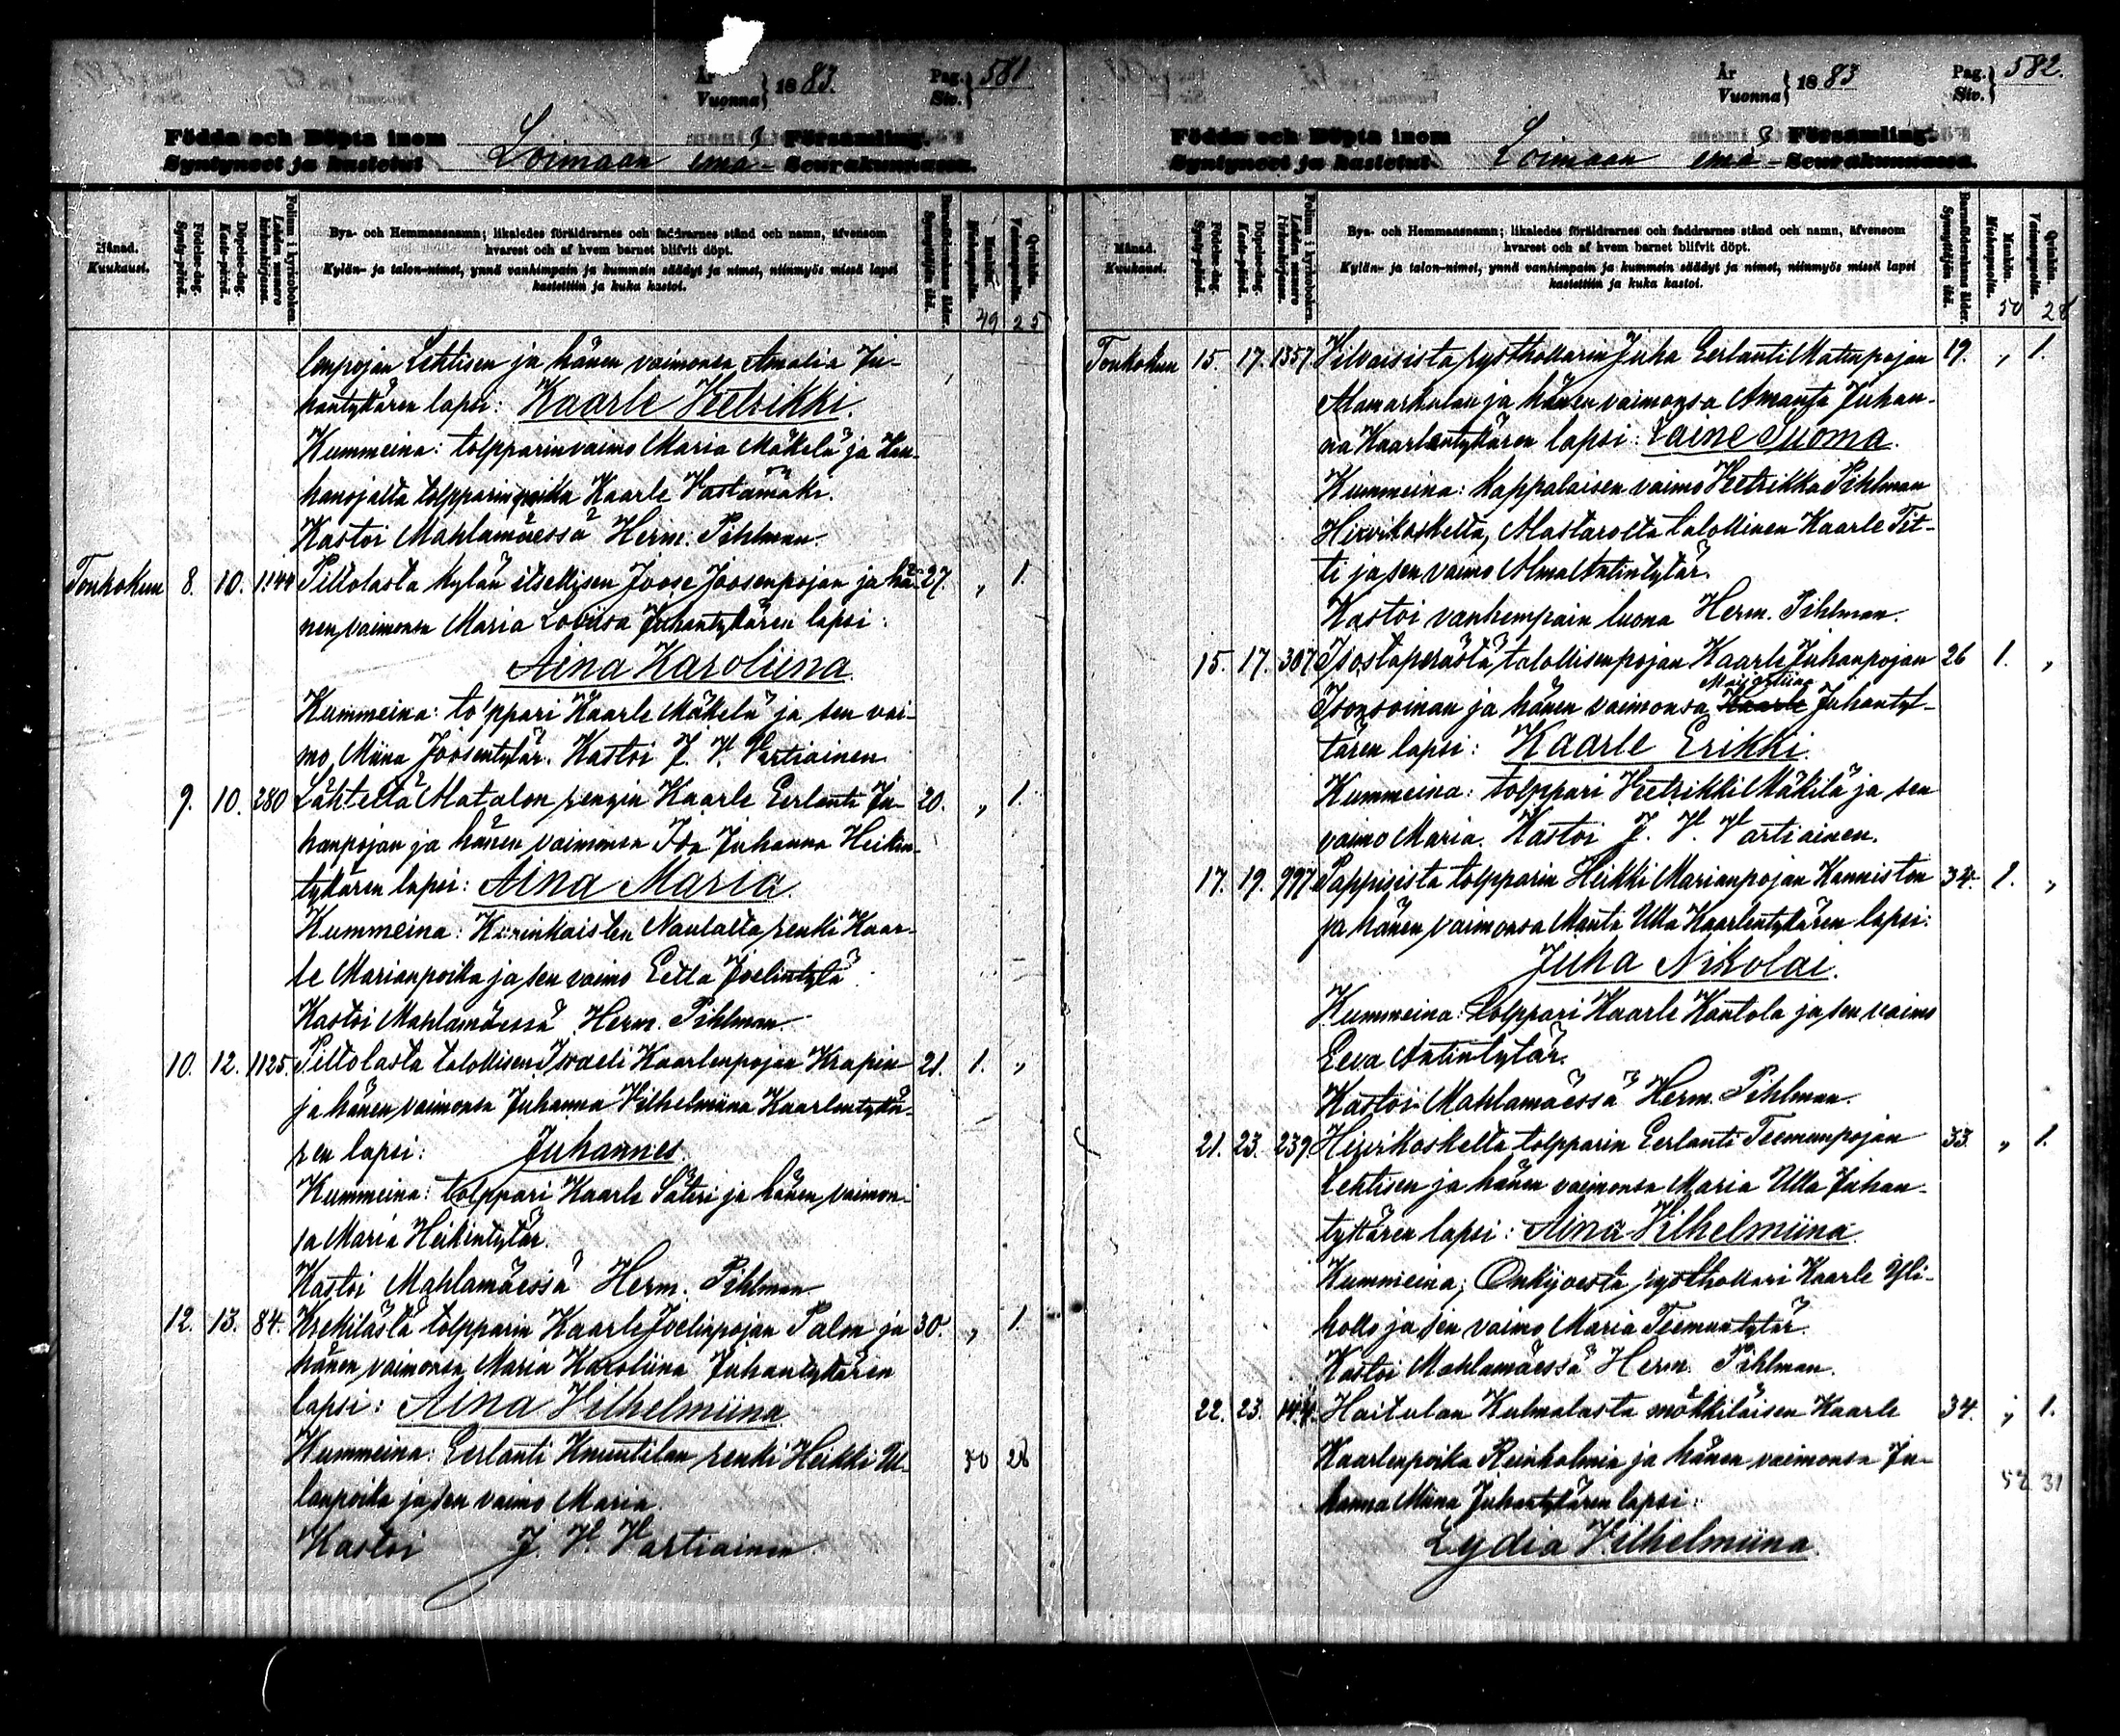 År
Vuonna } 1883.
Pag.
Siv. } 581
Födda och Döpta inom Församling.
Syntyneet ja kastetut Loimaan emä- Seurakunnassa.
Månad.
Kuukausi.
Födelse-dag.
Synty-päivä.
Döpelse-dag.
Kaste-päivä.
Folium i kyrkoboken.
Lehden numero kirkonkirjassa.
Bya- och Hemmansnamn; likaledes föräldrarnes och faddrarnes stånd och namn, äfvensom
hvarest och af hvem barnet blifvit döpt.
Kylän- ja talon-nimet, ynnä vanhimpain ja kummein säädyt ja nimet, niinmyös missä lapsi
kastettiin ja kuka kastoi.
Barnaföderskans ålder.
Synnyttäjän ikä.
Mankön.
Miehenpuolta.
Qvinkön.
Vaimonpuolta.
49 25
lenpojan Lehtisen ja hänen vaimonsa Amalia Ju-
hantyttären lapsi: Kaarle Vetrikki.
Kummeina: tolpparinvaimo Maria Mäkelä ja Kau-
hanojalta tolpparinpoika Kaarle Vastamäki.
Kastoi Mahlamäessä Herm. Pihlman.
Toukokuu 8. 10. 1144 Piltolasta kylän itsellisen Joose Joosenpojan ja hä- 27. „ 1.
nen vaimonsa Maria Loviisa Juhantyttären lapsi:
Aina Karoliina.
Kummeina: tolppari Kaarle Mäkelä ja sen vai-
mo, Miina Joosentytär. Kastoi J. V. Vartiainen
9. 10. 280 Lähteltä Alatalon rengin Kaarle Eerlanti Ju- 20. „ 1.
hanpojan ja hänen vaimonsa Ida Juhanna Heikin-
tyttären lapsi: Aina Maria.
Kummeina: Karinkaisten Naulalta renki Kaar-
le Marianpoika ja sen vaimo Eetla Joelintytä
Kastoi Mahlamäessä Herm. Pihlman.
10. 12. 1125. Piltolasta talollisen Israeli Kaarlenpojan Krapin 21. 1. „
ja hänen vaimonsa Juhanna Vilhelmiina Kaarlentyttä-
ren lapsi: Juhannes.
Kummeina: tolppari Kaarle Säteri ja hänen vaimon-
sa Maria Heikintytär.
Kastoi Mahlamäessä Herm. Pihlman
12. 13. 84. Krekilästä tolpparin Kaarle Joelinpojan Palon ja 30. „ 1.
hänen vaimonsa Maria Karoliina Juhantyttären
lapsi: Aina Vilhelmiina
Kummeina: Eerlanti Knuutilan renki Heikki Ul- 50 28
lanpoika ja sen vaimo Maria.
Kastoi J. V. Vartiainen.
År
Vuonna } 1883
Pag.
Siv. } 582.
Födda och Döpta inom Församling.
Syntyneet ja kastetut Loimaan emä- Seurakunnassa.
Månad.
Kuukausi.
Födelse-dag.
Synty-päivä.
Döpelse-dag.
Kaste-päivä.
Folium i kyrkoboken.
Lehden numero kirkonkirjassa.
Bya- och Hemmansnamn; likaledes föräldrarnes och faddrarnes stånd och namn, äfvensom
hvarest och af hvem barnet blifvit döpt.
Kylän- ja talon-nimet, ynnä vanhimpain ja kummein säädyt ja nimet, niinmyös missä lapsi
kastettiin ja kuka kastoi.
Barnaföderskans ålder.
Synnyttäjän ikä.
Mankön.
Miehenpuolta.
Qvinkön.
Vaimonpuolta.
50 28
Toukokuu 15. 17. 1357. rysthollarin Juha Eerlanti Matinpojan 19. „ 1.
ja hänen vaimonsa Amanta Juhan-
na Kaarlentyttären lapsi: Laine Suoma.
Kummeina: kappalaisen vaimo Vetrikka Pihlman
Hirvikoskelta, Alastarolta talollinen Kaarle Tit-
ti ja sen vaimo Alma Antintytär.
Kastoi vanhempain luona Herm. Pihlman.
15. 17. 307 Isostaperästä talollisenpojan Kaarle Juhanpojan 26 1. „
Isonsoinan ja hänen vaimonsa Juhantyt-
tären lapsi: Kaarle Erikki.
Kummeina: tolppari Vetrikki Mäkilä ja sen
vaimo Maria. Kastoi J. V. Vartiainen.
17. 19. 997 Pappisista tolpparin Heikki Marianpojan Kanniston 34. 1. „
ja hänen vaimonsa Manta Ulla Kaarlentyttären lapsi:
Juha Nikolai.
Kummeina: tolppari Kaarle Kantola ja sen vaimo
Eeva Antintytär.
Kastoi Mahlamäessä Herm. Pihlman.
21. 23. 239 Hirvikoskelta tolpparin Eerlanti Teemunpojan 33 „ 1.
Lehtisen ja hänen vaimonsa Maria Ulla Juhan-
tyttären lapsi: Aina Vilhelmiina.
Kummeina; Onkijoesta rysthollari Kaarle Yli-
hollo ja sen vaimo Maria Teemuntytär.
Kastoi Mahlamäessä Herm. Pihlman.
22. 23. Haitulan Kulmalasta mökkiläisen Kaarle 34. „ 1.
Kaarlenpoika Reinholmin ja hänen vaimonsa Ju-
hanna Miina Juhantyttären lapsi: 52 31
Lydia Vilhelmiina.